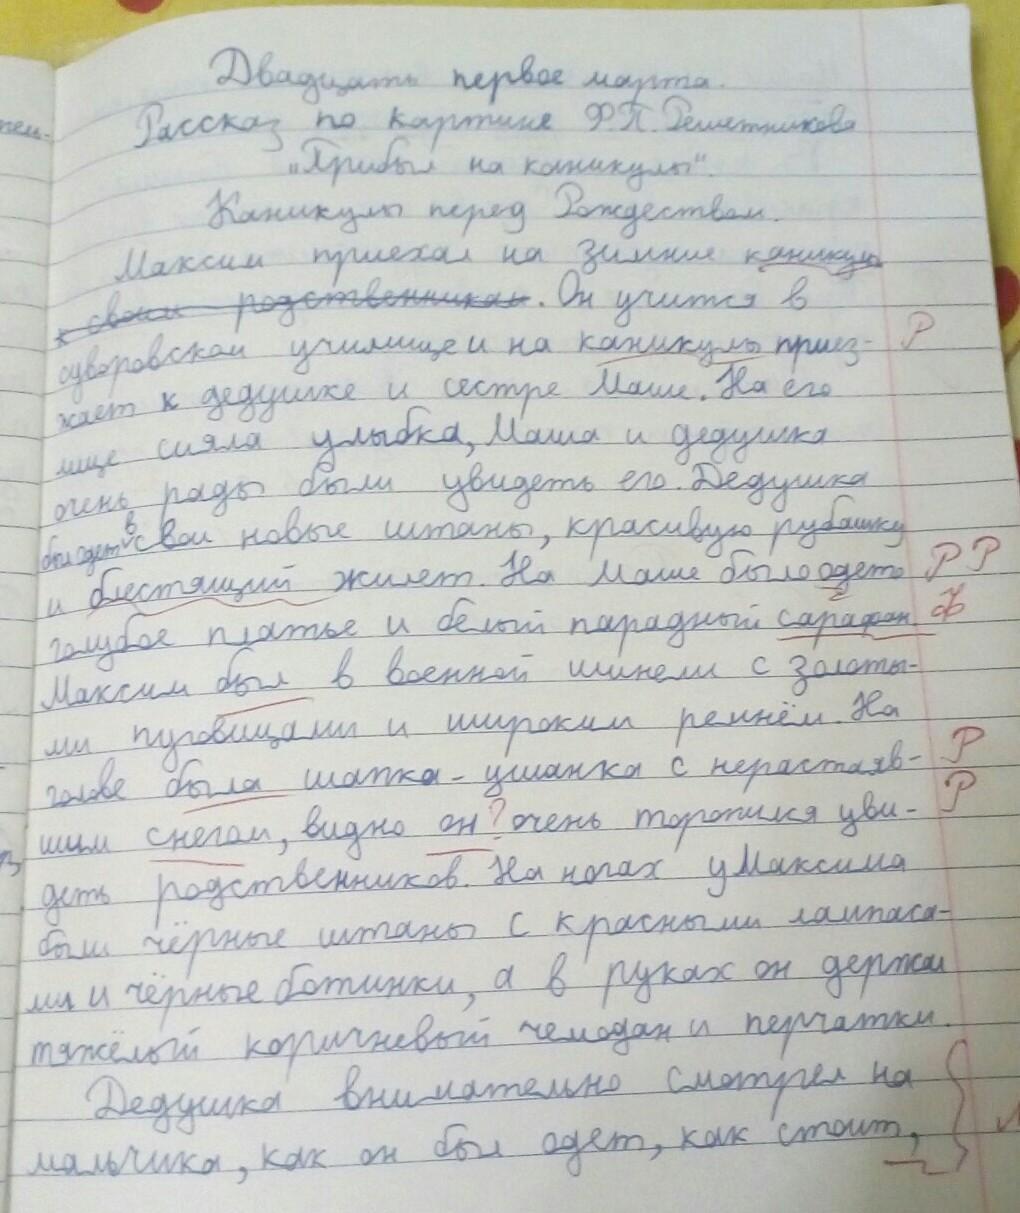 Двадцать первое марта.
Рассказ по картине Ф.П. Решетникова
„Прибыл на каникулы".
Каникулы перед Рождеством.
Максим приехал на зимние каникулы
к своим родственникам. Он учится в
суворовском училище и на каникулы приез- Р
жает к дедушке и сестре Маше. На его
лице сияла улыбка, Маша и дедушка
очень рады были увидеть его. Дедушка
был одет в свои новые штаны, красивую рубашку
и блестящий жилет. На Маше было одето Р Р
голубое платье и белый парадный сарафан. Ф
Максим был в военной шинели с золоты-
ми пуговицами и широким ремнём. На
голове была шапка-ушанка с нерастаяв- Р
шим снегом, видно он ? очень торопился уви- Р
деть родственников. На ногах у Максима
были чёрные штаны с красными лампаса-
ми и чёрные ботинки, а в руках он держал
тяжёлый коричневый чемодан и перчатки.
Дедушка внимательно смотрел на
мальчика, как он был одет, как стоит,